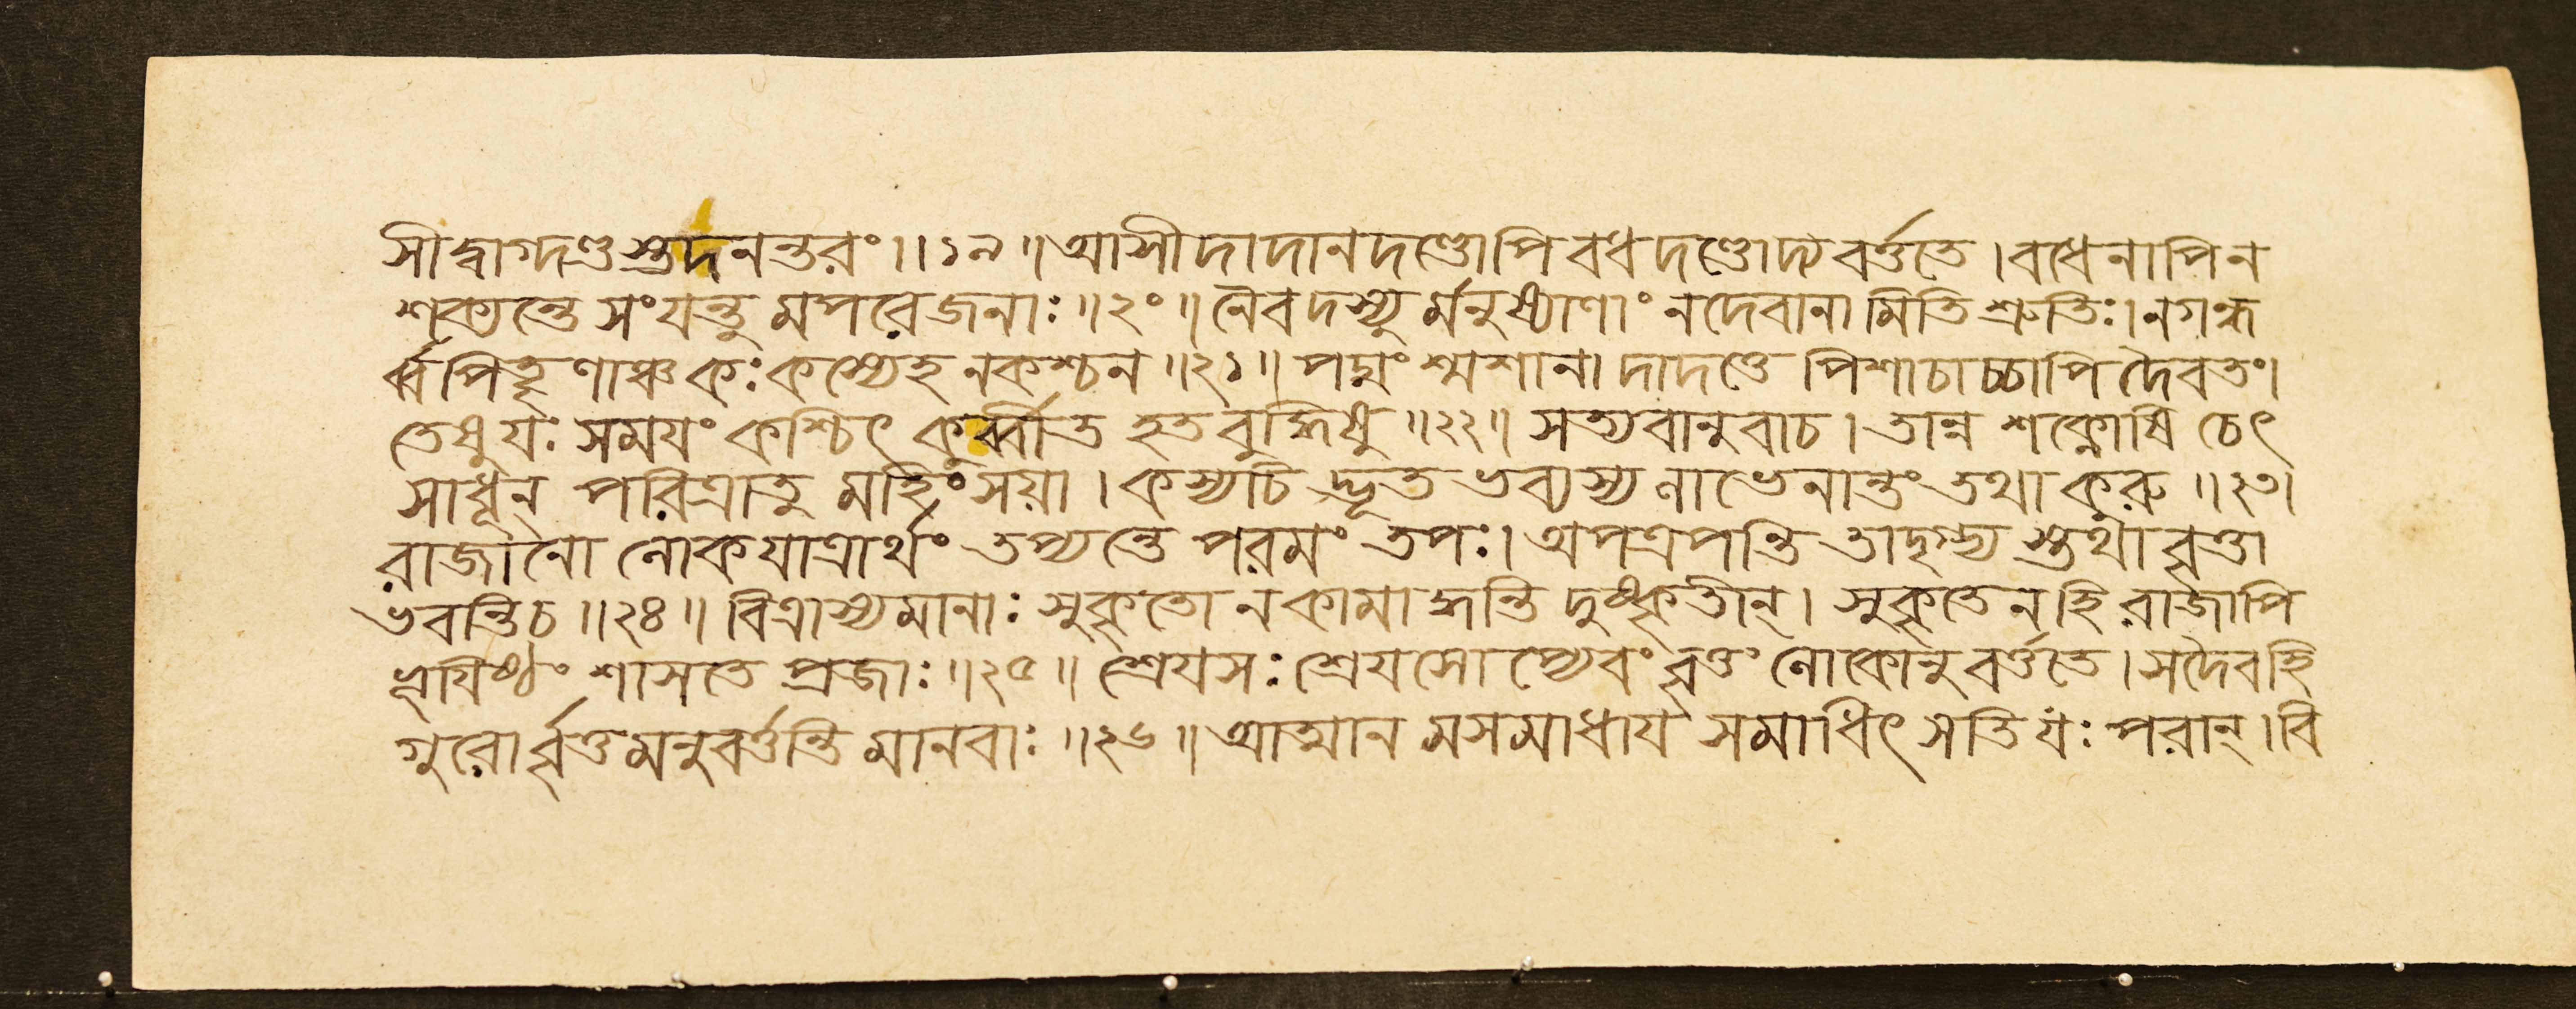 সীদ্বাগ্দণ্ডস্তদনন্তরং।।১৯॥আসীদাদানদণ্ডোপিবধদণ্ডোদ্যবর্ত্ততে।বধেনাপিন
শক্যন্তেসংযন্তুমপরেজনাঃ॥২০॥নৈবদস্যুর্মনুষ্যাণাংনদেবানামিতিশ্রুতিঃ।নগন্ধ
র্ব্বপিতৄণাঞ্চকঃকস্যেহনকশ্চন॥২১॥পদ্মংশ্মশানাদাদত্তে পিশাচাচ্চাপিদৈবতং।
তেষুযঃ সময়ং কশ্চিৎ কুর্ব্বীত হতবুদ্ধিষু॥২২॥ সত্যবানুবাচ। তান্ন শক্নোষি চেৎ
সাধূন্ পরিত্রাতু মহিংসয়া। কস্যচি দ্ভূত ভব্যস্য লাভেনান্তং তথা কুরু॥২৩।
রাজানো লোকযাত্রার্থং তপ্যন্তে পরমং তপঃ। অপত্রপন্তি তাদৃগ্ভ্য স্তথা বৃত্তা
ভবন্তিচ॥২৪॥ বিত্রাস্যমানাঃ সুকৃতো নকামাদ্ঘ্নন্তি দুষ্কৃতীন্। সুকৃতেনহি রাজাপি
ভূয়িষ্ঠং শাসতে প্রজাঃ॥২৫॥ শ্রেয়সঃ শ্রেয়সোপ্যেবং বৃত্তং লোকোনুবর্ত্ততে। সদৈবহি
গুরোর্ব্বৃত্তমনুবর্ত্তন্তি মানবাঃ॥২৬॥ আত্মান মসমাধায় সমাধিৎসতি যঃ পরান্। বি